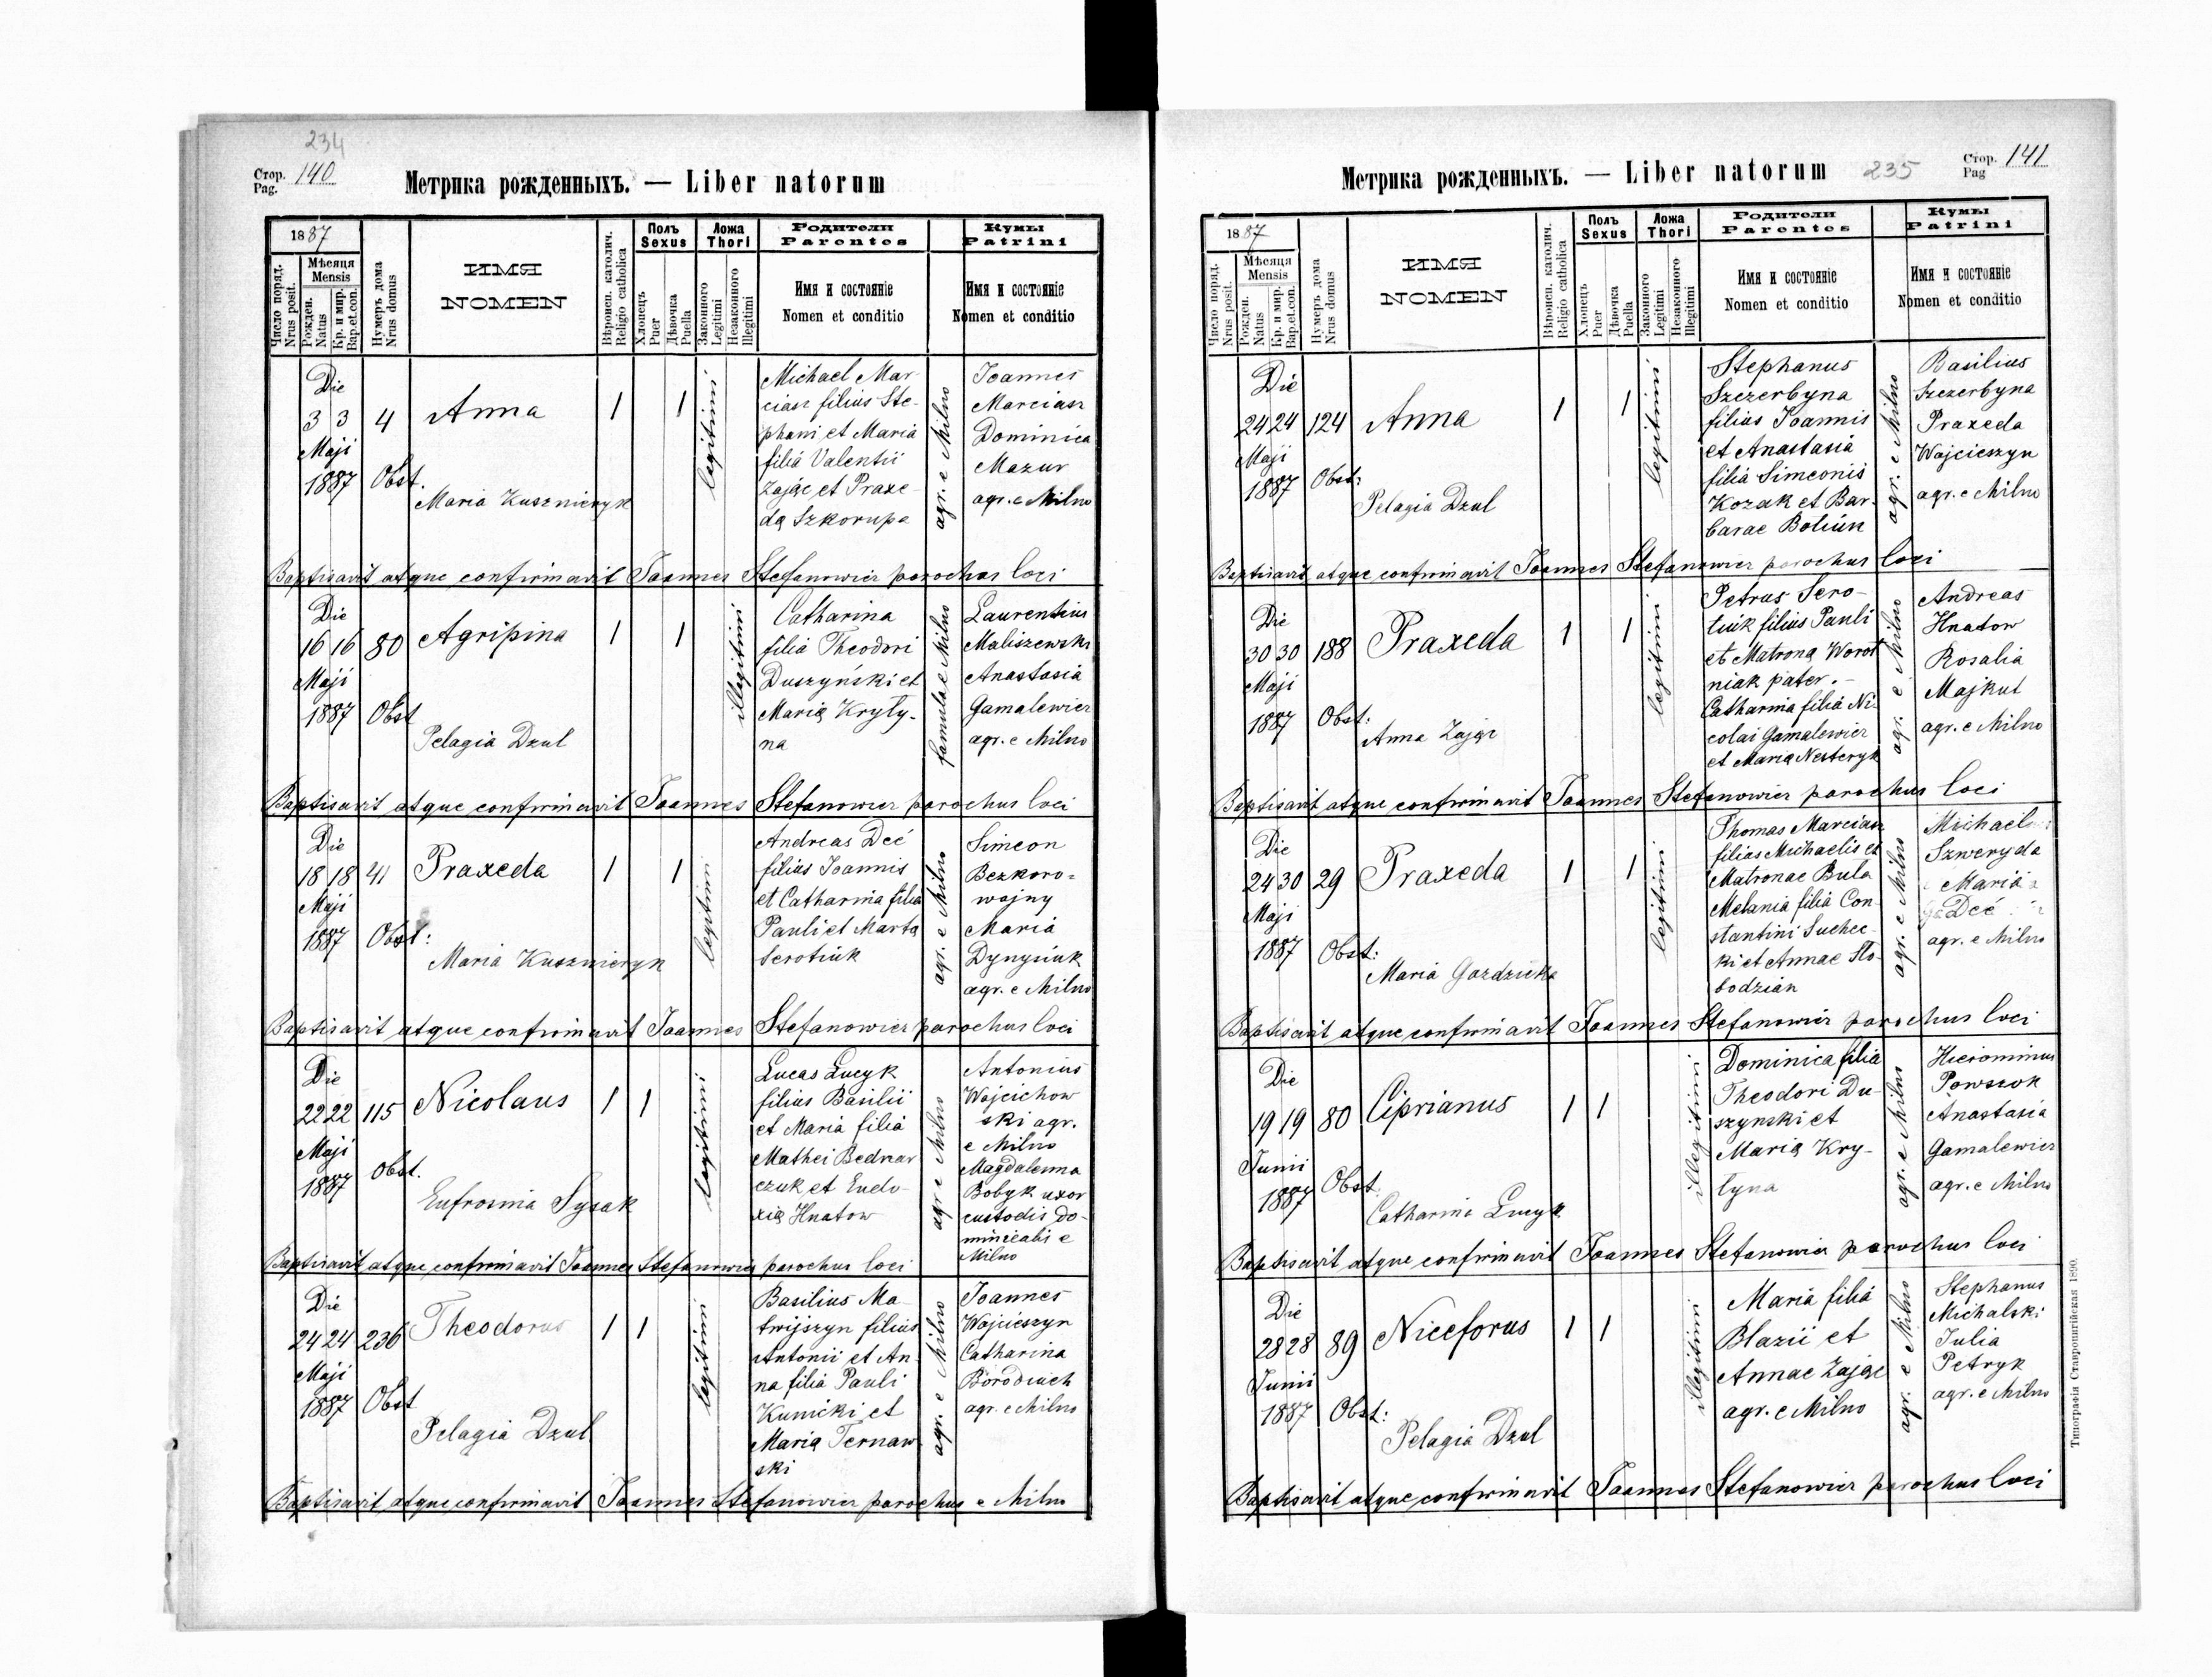 234
Стор. Pag. 140
Метрика рожденныхъ. — Liber natorum
1887
Число поряд. Nrus posit.
Мѣсяця Mensis
Рожден. Natus
Кр. и мир. Bap.et.con.
Нумеръ дома Nrus domus
ИМЯ
NOMEN
Вѣроисп. католич. Religio catholica
Полъ Sexus
Хлопецъ Puer
Дѣвочка Puella
Ложа Thori
Законного Legitimi
Незаконного Illegitimi
Родители Parentes
Имя и состояніе
Nomen et conditio
Кумы Patrini
Имя и состояніе
Nomen et conditio
Die
3 3 4 Anna 1 1 legitimi
Maji
1887 Obst.
Maria Kusznieryk
Michael Mar-
ciasz filius Ste-
phani et Maria
filia Valentii
Zając et Praxe-
dą Szkorupa
agr. e Milno
Joannes
Marciasz
Dominica
Mazur
agr. e Milno
Baptisavit atque confirmavit Joannes Stefanowicz parochus loci
Die
16 16 80 Agripina 1 1 illegitimi
Maji
1887 Obst
Pelagia Dzul
Catharina
filia Theodori
Duszyński et
Marią Kryty-
na
famula e Milno
Laurentius
Maliszewski
Anastasia
Gamalewicz
agr. e Milno
Baptisavit atque confirmavit Joannes Stefanowicz parochus loci
Die
18 18 41 Praxeda 1 1 legitimi
Maji
1887 Obst:
Maria Kusznieryk
Andreas Deć
filius Joannis
et Catharina filia
Pauli et Marta
Serotiuk
agr. e Milno
Simeon
Bezkoro=
wajny
Maria
Dynysiuk
agr. e Milno
Baptisavit atque confirmavit Joannes Stefanowicz parochus loci
Die
22 22 115 Nicolaus 1 1 legitimi
Maji
1887 Obst.
Eufrosina Sysak
Lucas Lucyk
filius Basilii
et Maria filia
Mathei Bednar
czuk et Eudo-
xią Hnatow
agr e Milno
Antonius
Wojcichow
ski agr.
e Milno
Magdalenna
Bobyk uxor
custodis do-
minicalis e
Milno
Baptisavit atque confirmavit Joannes Stefanowicz parochus loci
Die
24 24 236 Theodorus 1 1 legitimi
Maji
1887 Obst
Pelagia Dzul
Basilius Ma-
twijszyn filius
Antonii et An-
na filia Pauli
Kunicki et
Marią Ternaw
ski
agr. e Milno
Joannes
Wojcieszyn
Catharina
Borodiuch
agr. e Milno
Baptisavit atque confirmavit Joannes Stefanowicz parochus e Milno
Метрика рожденныхъ. — Liber natorum
235
Стор. Pag 141
1887
Число поряд. Nrus posit.
Мѣсяця Mensis
Рожден. Natus
Кр. и мир. Bap.et.con.
Нумеръ дома Nrus domus
ИМЯ
NOMEN
Вѣроисп. католич. Religio catholica
Полъ Sexus
Хлопецъ Puer
Дѣвочка Puella
Ложа Thori
Законного Legitimi
Незаконного Illegitimi
Родители Parentes
Имя и состояніе
Nomen et conditio
Кумы Patrini
Имя и состояніе
Nomen et conditio
Die
24 24 124 Anna 1 1 legitimi
Maji
1887 Obst:
Pelagia Dzul
Stephanus
Szczerbyna
filius Joannis
et Anastasia
filia Simeonis
Kozak et Bar-
barae Botiuk
agr. e Milno
Basilius
Szczerbyna
Praxeda
Wojcieszyn
agr. e Milno
Baptisavit atque confirmavit Joannes Stefanowicz parochus loci
Die
30 30 188 Praxeda 1 1 legitimi
Maji
1887 Obst:
Anna Zając
Petrus Sero-
tiuk filius Pauli
et Matroną Worot
niak pater.-
Catharina filia Ni-
colai Gamalewicz
et Marią Nesteryk
agr. e Milno
Andreas
Hnatow
Rosalia
Majkut
agr. e Milno
Baptisavit atque confirmavit Joannes Stefanowicz parochus loci
Die
24 30 29 Praxeda 1 1 legitimi
Maji
1887 Obst:
Maria Gozdzicka
Thomas Marciasz
filius Michaelis et
Matronae Bula
Melania filia Con-
stantini Suchec-
ki et Annae Sło-
bodzian
agr. e Milno
Michael
Szweryda
Maria
Deć
agr. e Milno
Baptisavit atque confirmavit Joannes Stefanowicz parochus loci
Die
19 19 80 Ciprianus 1 1 illegitimi
Junii
1887 Obst.
Catharina Lucyk
Dominica filia
Theodori Du-
szynski et
Marią Kry-
tyna
agr. e Milno
Hierominus
Powszok
Anastasia
Gamalewicz
agr. e Milno
Baptisavit atque confirmavit Joannes Stefanowicz parochus loci
Die
28 28 89 Niceforus 1 1 illegitimi
Junii
1887 Obst:
Pelagia Dzul
Maria filia
Blazii et
Annae Zając
agr. e Milno
agr. e Milno
Stephanus
Michalski
Julia
Petryk
agr. e Milno
Baptisavit atque confirmavit Joannes Stefanowicz parochus loci
Типографія Ставропигійская 1890.